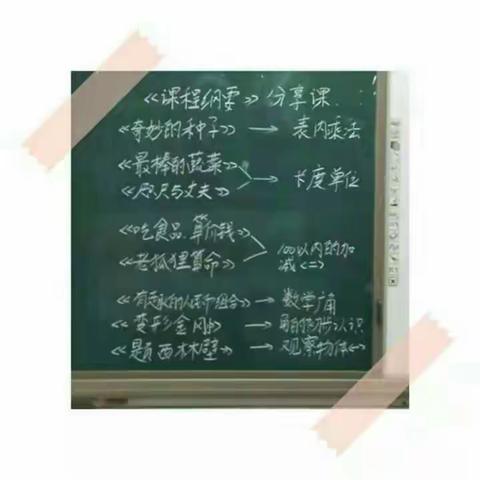 《课程纲要》分享课
《奇妙的种子》→ 表内乘法
《最棒的蔬菜》
《尺与丈夫》
→ 长度单位
《吃食品.算价钱》
《老狐狸算命》
100以内的加
减<二>
《有趣的人民币组合》→ 数学广角
《变形金刚》→ 角的初步认识
《题西林壁》→ 观察物体<一>